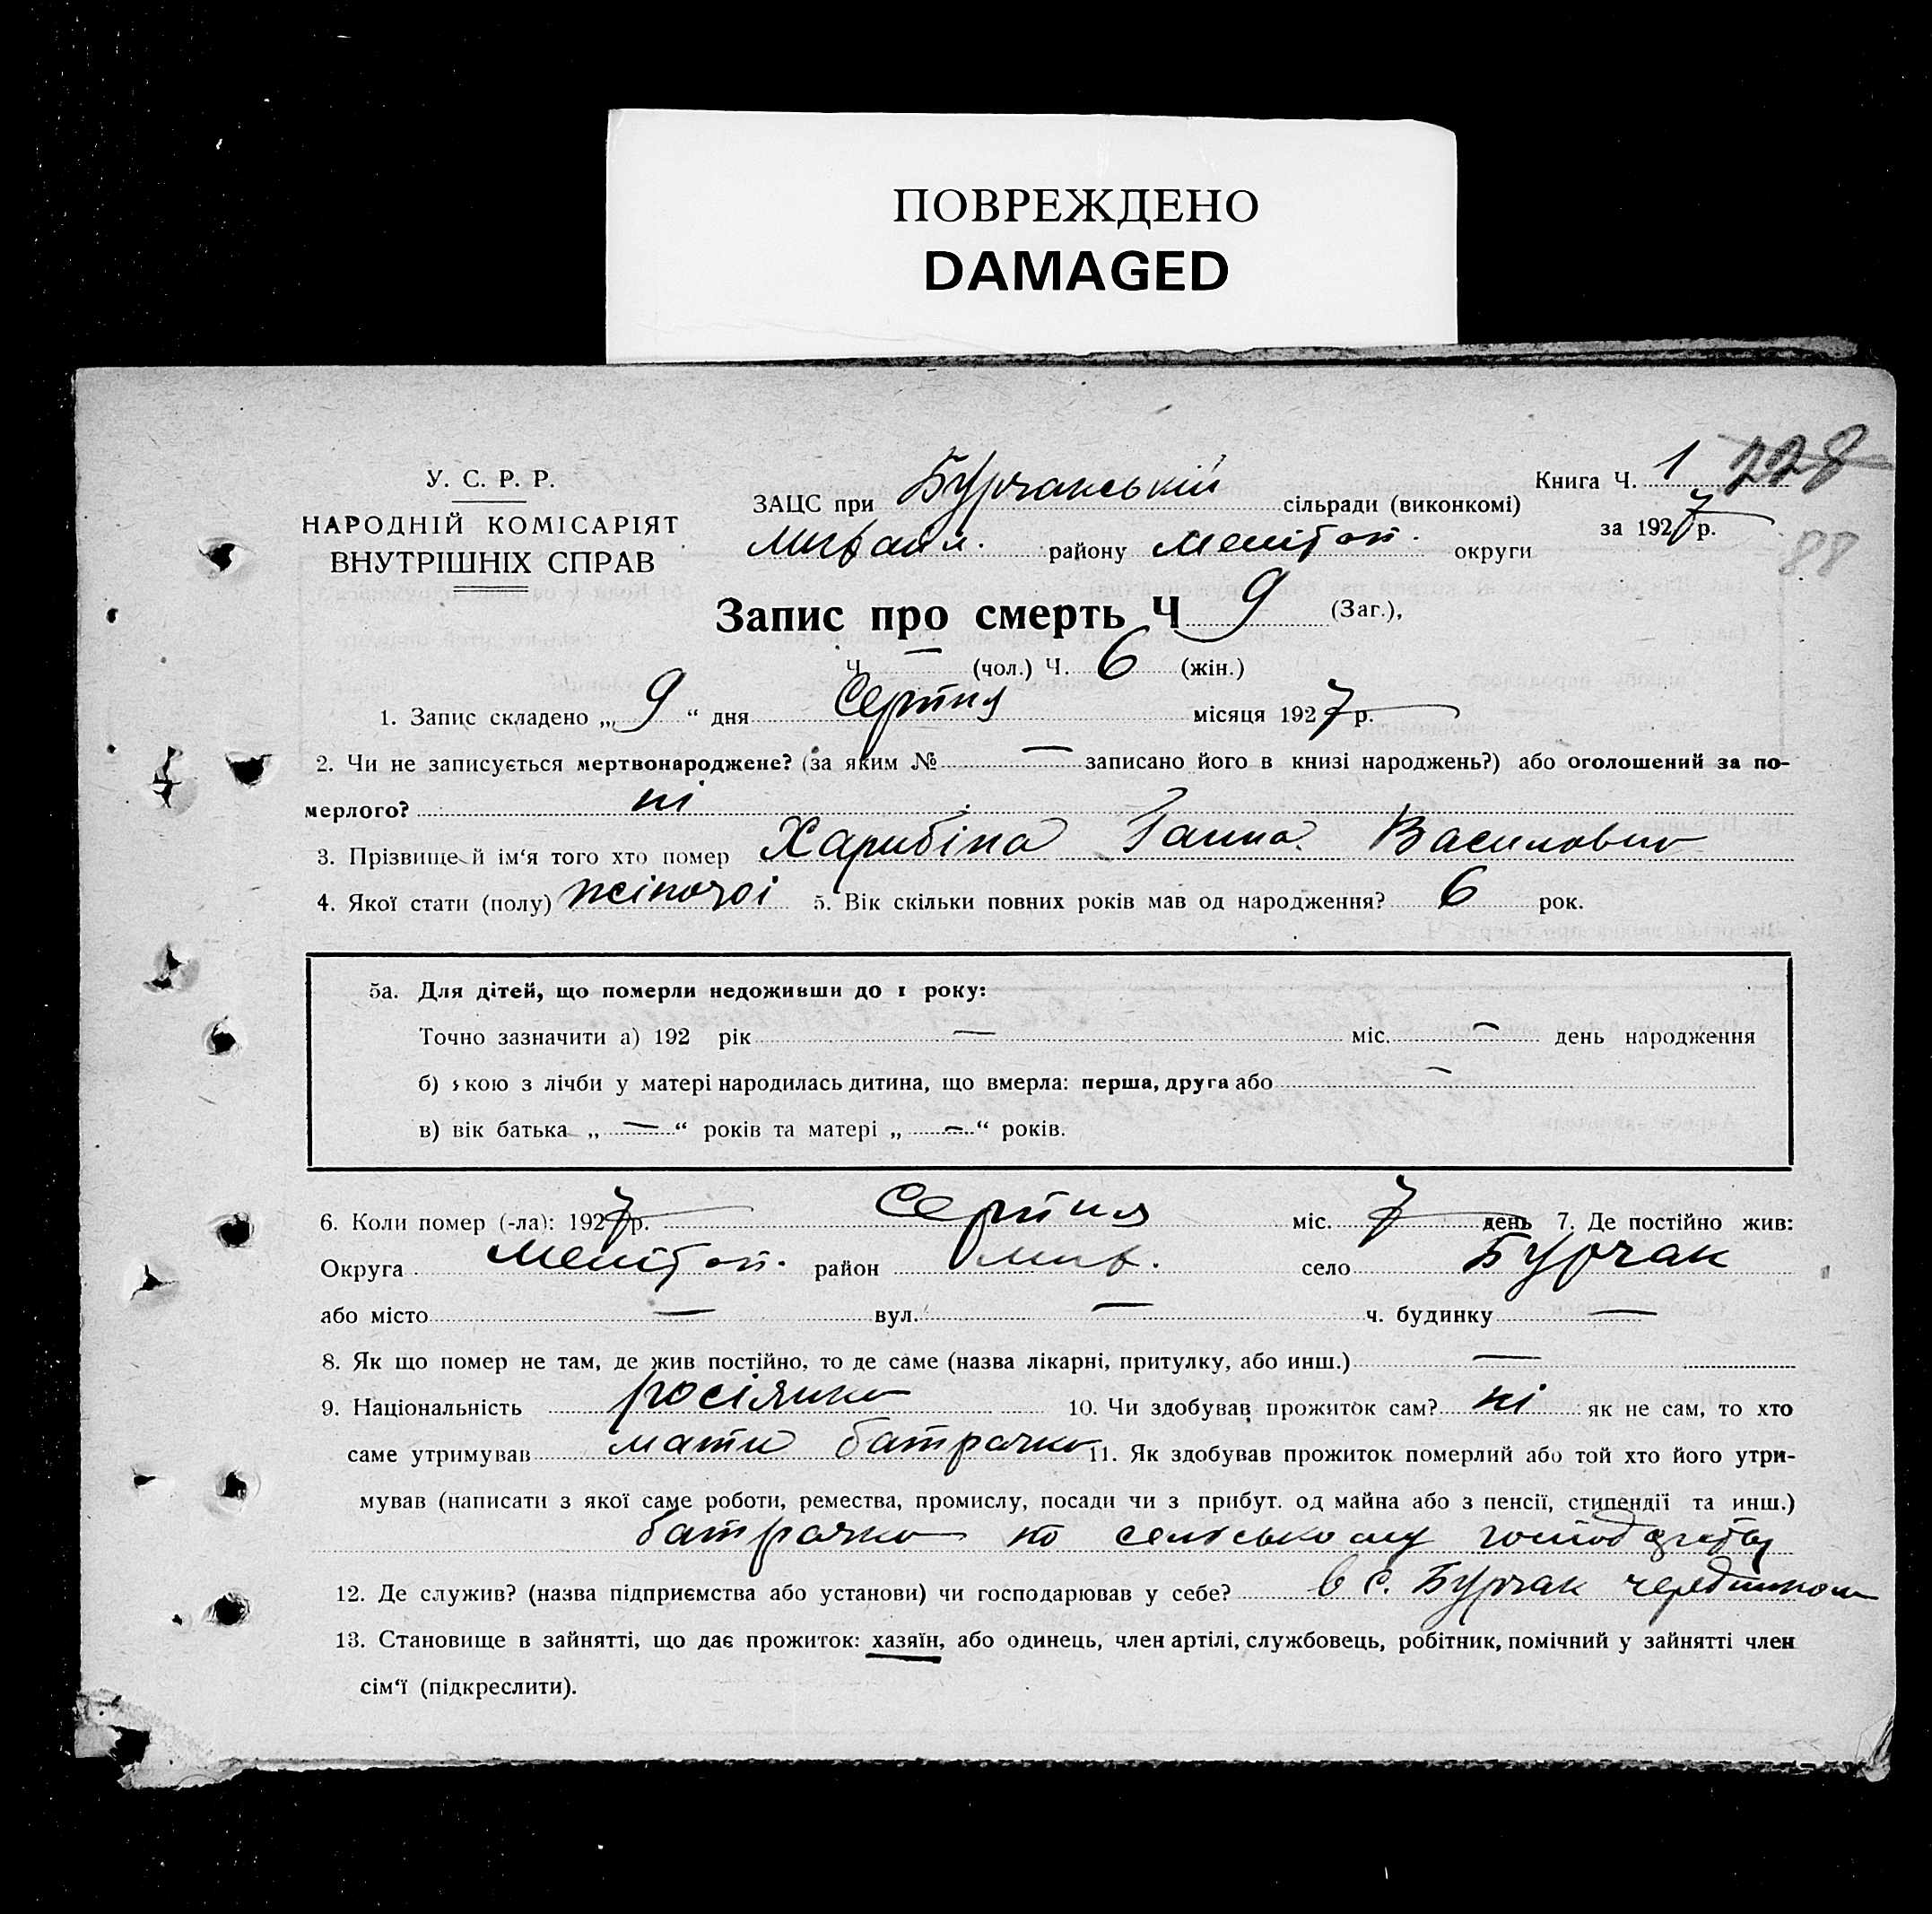 ПОВРЕЖДЕНО
DAMAGED
У. С. Р. Р.
НАРОДНІЙ КОМІСАРІЯТ
ВНУТРІШНІХ СПРАВ
Книга Ч. 1 228
за 1927 р.
88
ЗАЦС при Бурчанській сільради (виконкомі)
району Меліт оп. округи
Запис про смерть Ч 9 (Заг.),
Ч — (чол.) Ч. 6 (жін.)
1. Запис складено „ 9 “ дня Серпня місяця 1927 р.
2. Чи не записується мертвонароджене? (за яким № — записано його в книзі народжень?) або оголошений за по-
мерлого? ні
3. Прізвище й ім‘я того хто помер Харибіна Ганна Василовна
4. Якої стати (полу) жіночої 5. Вік скільки повних років мав од народження? 6 рок.
5а. Для дітей, що померли недоживши до 1 року:
Точно зазначити а) 192 рік — міс. — день народження
б) якою з лічби у матері народилась дитина, що вмерла: перша, друга або —
в) вік батька „ — “ років та матері „ — “ років.
6. Коли помер (-ла): 1927 р. Серпня міс. 7 день 7. Де постійно жив:
Округа Мелітоп. район Мих. село Бурчак
або місто — вул. — ч. будинку —
8. Як що помер не там, де жив постійно, то де саме (назва лікарні, притулку, або инш.) —
9. Національність росіянка 10. Чи здобував прожиток сам? ні як не сам, то хто
саме утримував мати батрачка 11. Як здобував прожиток померлий або той хто його утри-
мував (написати з якої саме роботи, ремества, промислу, посади чи з прибут. од майна або з пенсії, стипендії та инш.)
батрачка по сельському господарству
12. Де служив? (назва підприємства або установи) чи господарював у себе? в с. Бурчак
13. Становище в зайнятті, що дає прожиток: хазяїн, або одинець, член артілі, службовець, робітник, помічний у зайнятті член
сім‘ї (підкреслити).